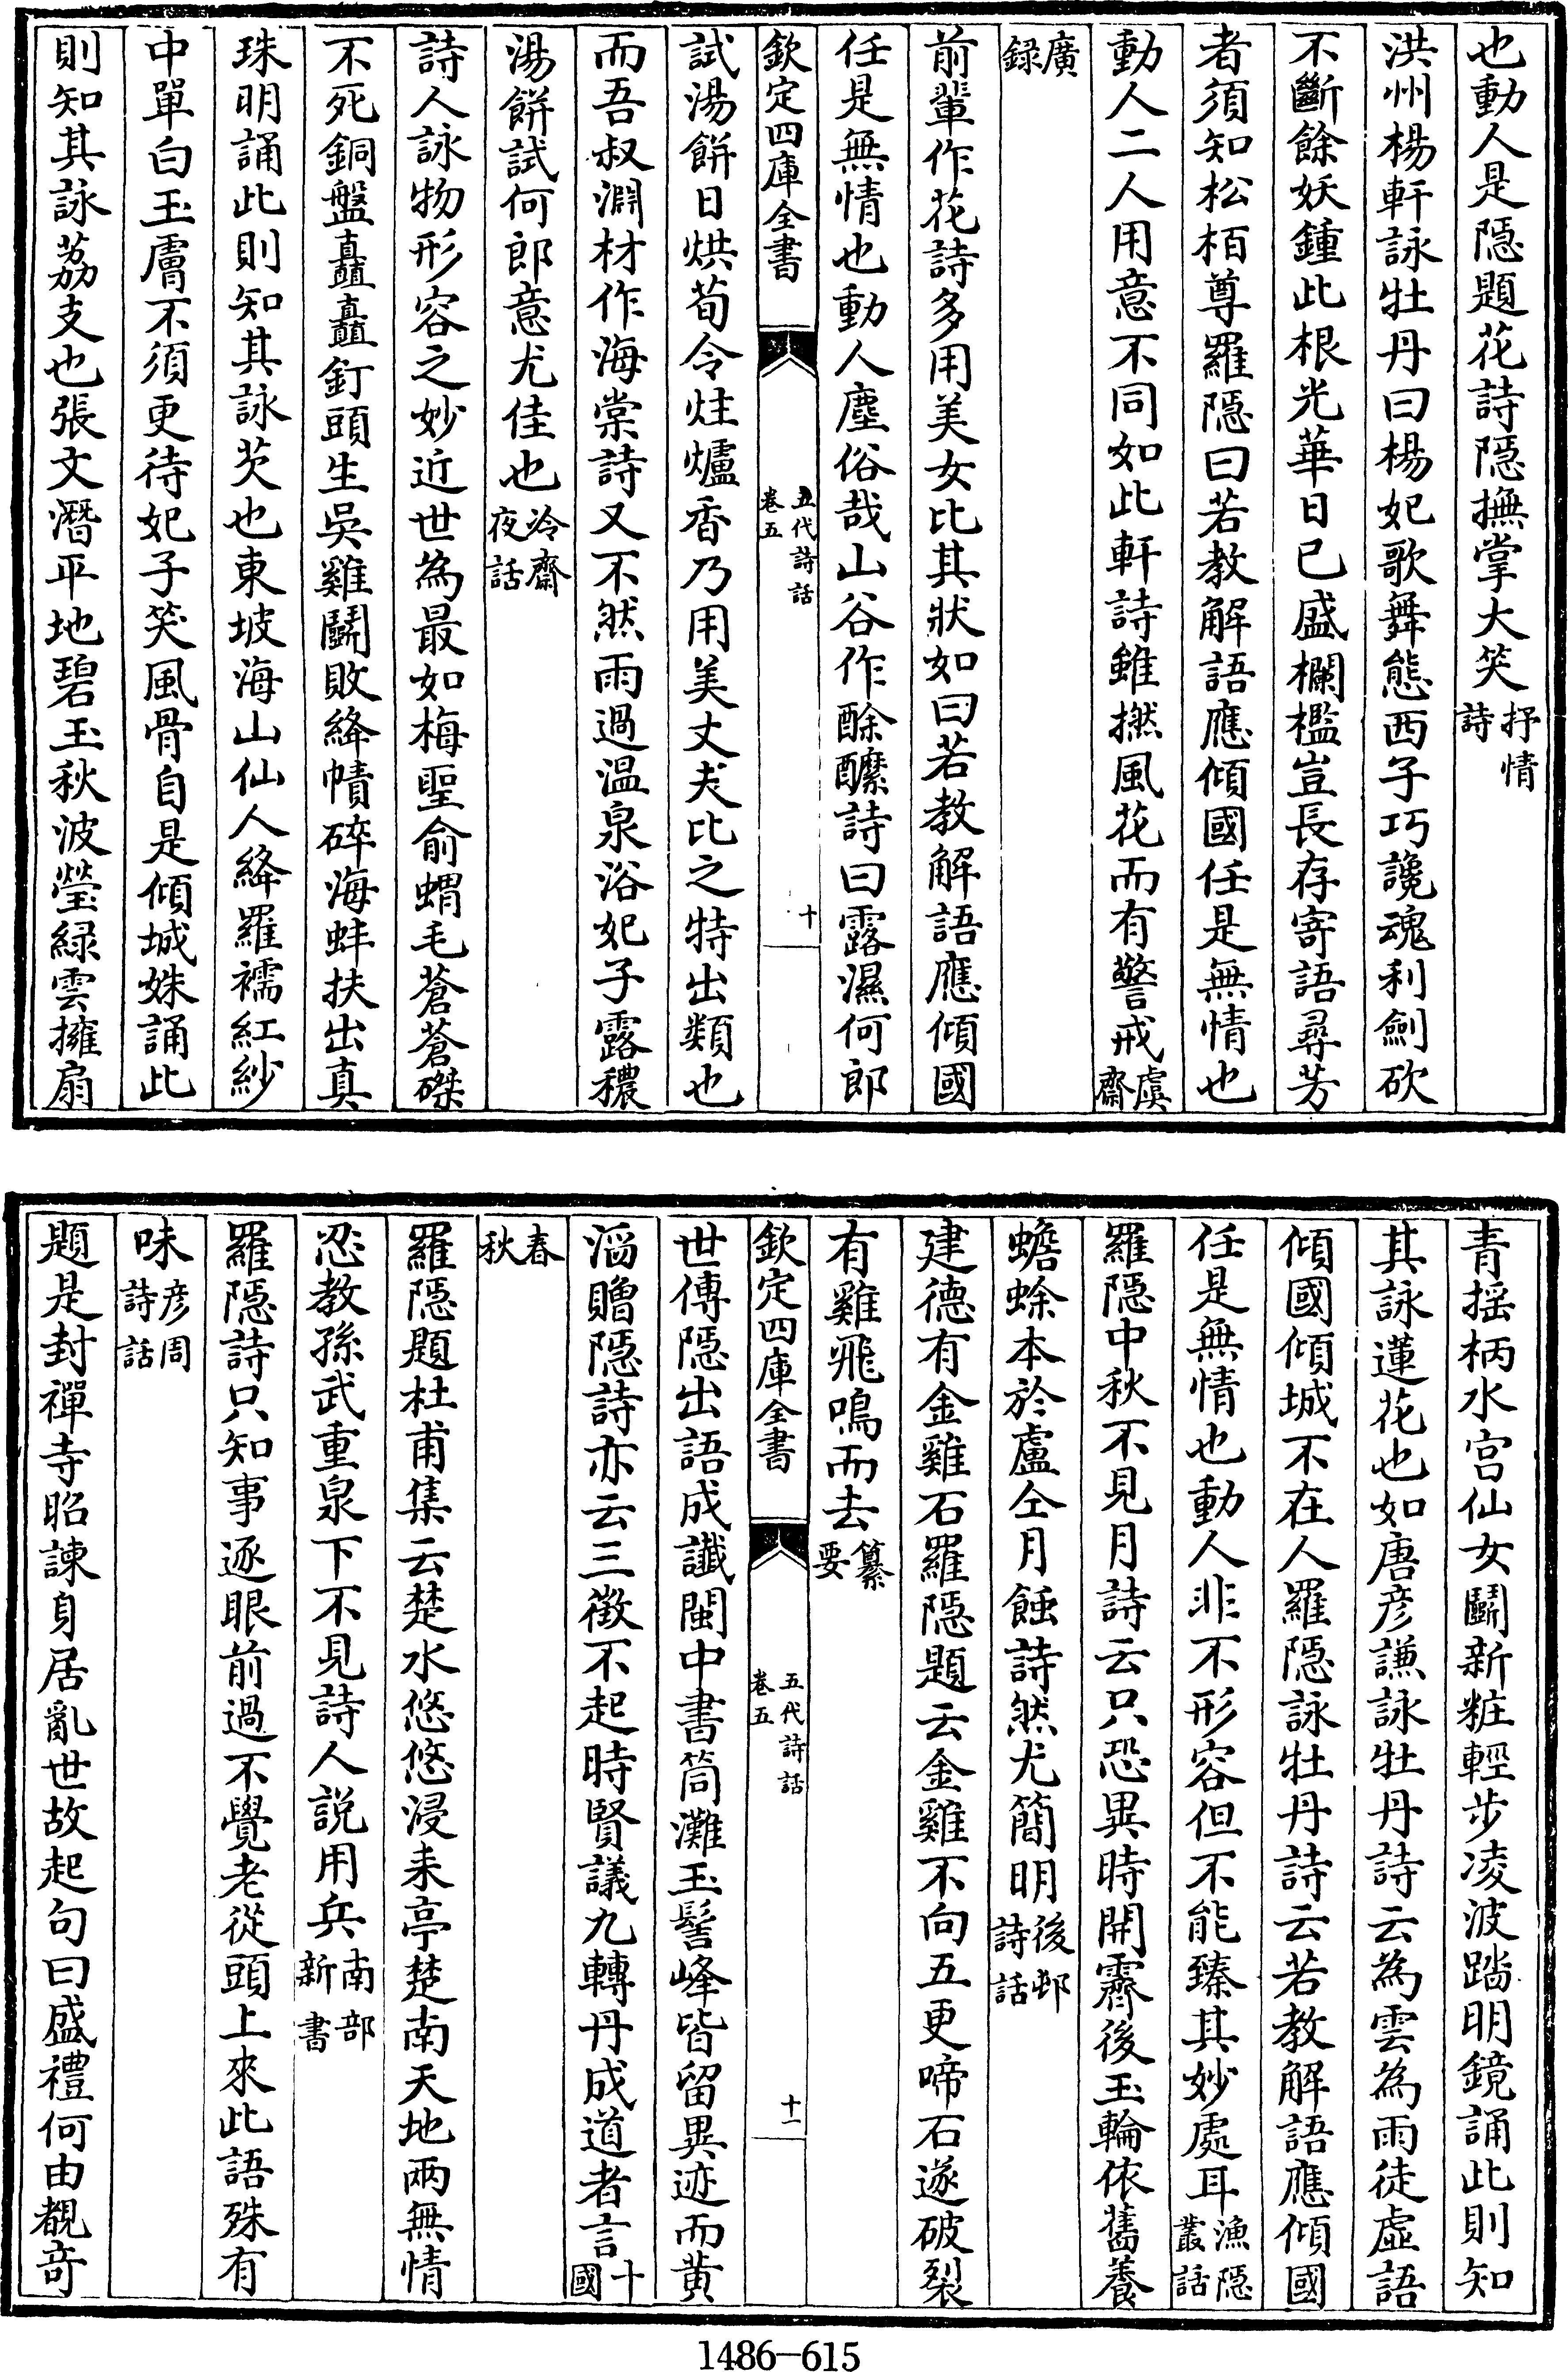 也動人是隱題花詩隱撫掌大笑抒情詩
洪州楊軒詠牡丹曰楊妃歌舞態西子巧讒魂利劍砍
不斷餘妖鍾此根光華日已盛欄檻豈長存寄語尋芳
者須知松栢尊羅隱曰若教解語應傾國任是無情也
動人二人用意不同如此軒詩雖撚風花而有警戒虞齋
廣録
前輩作花詩多用美女比其狀如曰若教解語應傾國
任是無情也動人塵俗哉山谷作酴醿詩曰露濕何郎
欽定四庫全書 五代詩話卷五 十
試湯餅日烘荀令炷爐香乃用美丈夫比之特出類也
而吾叔淵材作海棠詩又不然雨過温泉浴妃子露穠
湯餅試何郎意尤佳也冷齋夜話
詩人詠物形容之妙近世為最如梅聖俞蝟毛蒼蒼磔
不死銅盤矗矗釘頭生吳雞鬭敗絳幘碎海蚌扶出真
珠明誦此則知其詠芡也東坡海山仙人絳羅襦紅紗
中單白玉膚不須更待妃子笑風骨自是傾城姝誦此
則知其詠荔支也張文潛平地碧玉秋波瑩緑雲擁扇
青摇柄水宫仙女鬭新粧輕步凌波踏明鏡誦此則知
其詠蓮花也如唐彦謙詠牡丹詩云為雲為雨徒虚語
傾國傾城不在人羅隱詠牡丹詩云若教解語應傾國
任是無情也動人非不形容但不能臻其妙處耳漁隱叢話
羅隱中秋不見月詩云只恐異時開霽後玉輪依舊養
蟾蜍本於盧仝月蝕詩然尤簡明後邨詩話
建德有金雞石羅隱題云金雞不向五更啼石遂破裂
有雞飛鳴而去纂要
欽定四庫全書 五代詩話卷五 十一
世傳隱出語成讖閩中書筒灘玉髻峰皆留異迹而黄
滔贈隱詩亦云三徵不起時賢議九轉丹成道者言十國
春秋
羅隱題杜甫集云楚水悠悠浸耒亭楚南天地兩無情
忍教孫武重泉下不見詩人説用兵南部新書
羅隱詩只知事逐眼前過不覺老從頭上來此語殊有
味彦周詩話
題是封禪寺昭諫身居亂世故起句曰盛禮何由覩奇
1486—615